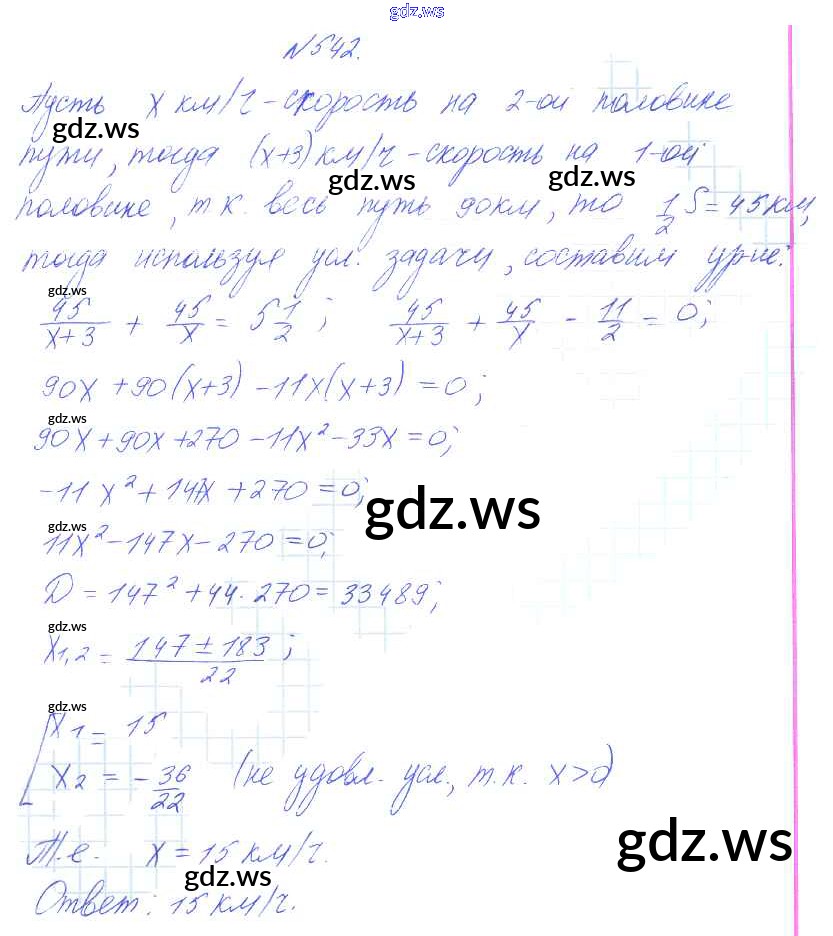 gdz.ws
№542.
Пусть x км/ч - скорость на 2-ой половине
gdz.ws
пути, тогда (x+3) км/ч - скорость на 1-ой
gdz.ws gdz.ws
половине, т.к. весь путь 90км, то 1/2 S = 45 км,
тогда используя усл. задачи, составим ур-ие:
gdz.ws
45/(x+3) + 45/x = 5 1/2 ; 45/(x+3) + 45/x - 11/2 = 0;
90x + 90(x+3) - 11x(x+3) = 0;
gdz.ws
90x + 90x + 270 - 11x² - 33x = 0;
-11x² + 147x + 270 = 0;
gdz.ws
gdz.ws
11x² - 147x - 270 = 0;
D = 147² + 44·270 = 33489;
gdz.ws
x1,2 = (147 ± 183)/22 ;
gdz.ws
[ x1 = 15
x2 = - 36/22 (не удовл. усл., т.к. x>0)
gdz.ws
Т.е. x = 15 км/ч.
gdz.ws
Ответ: 15 км/ч.